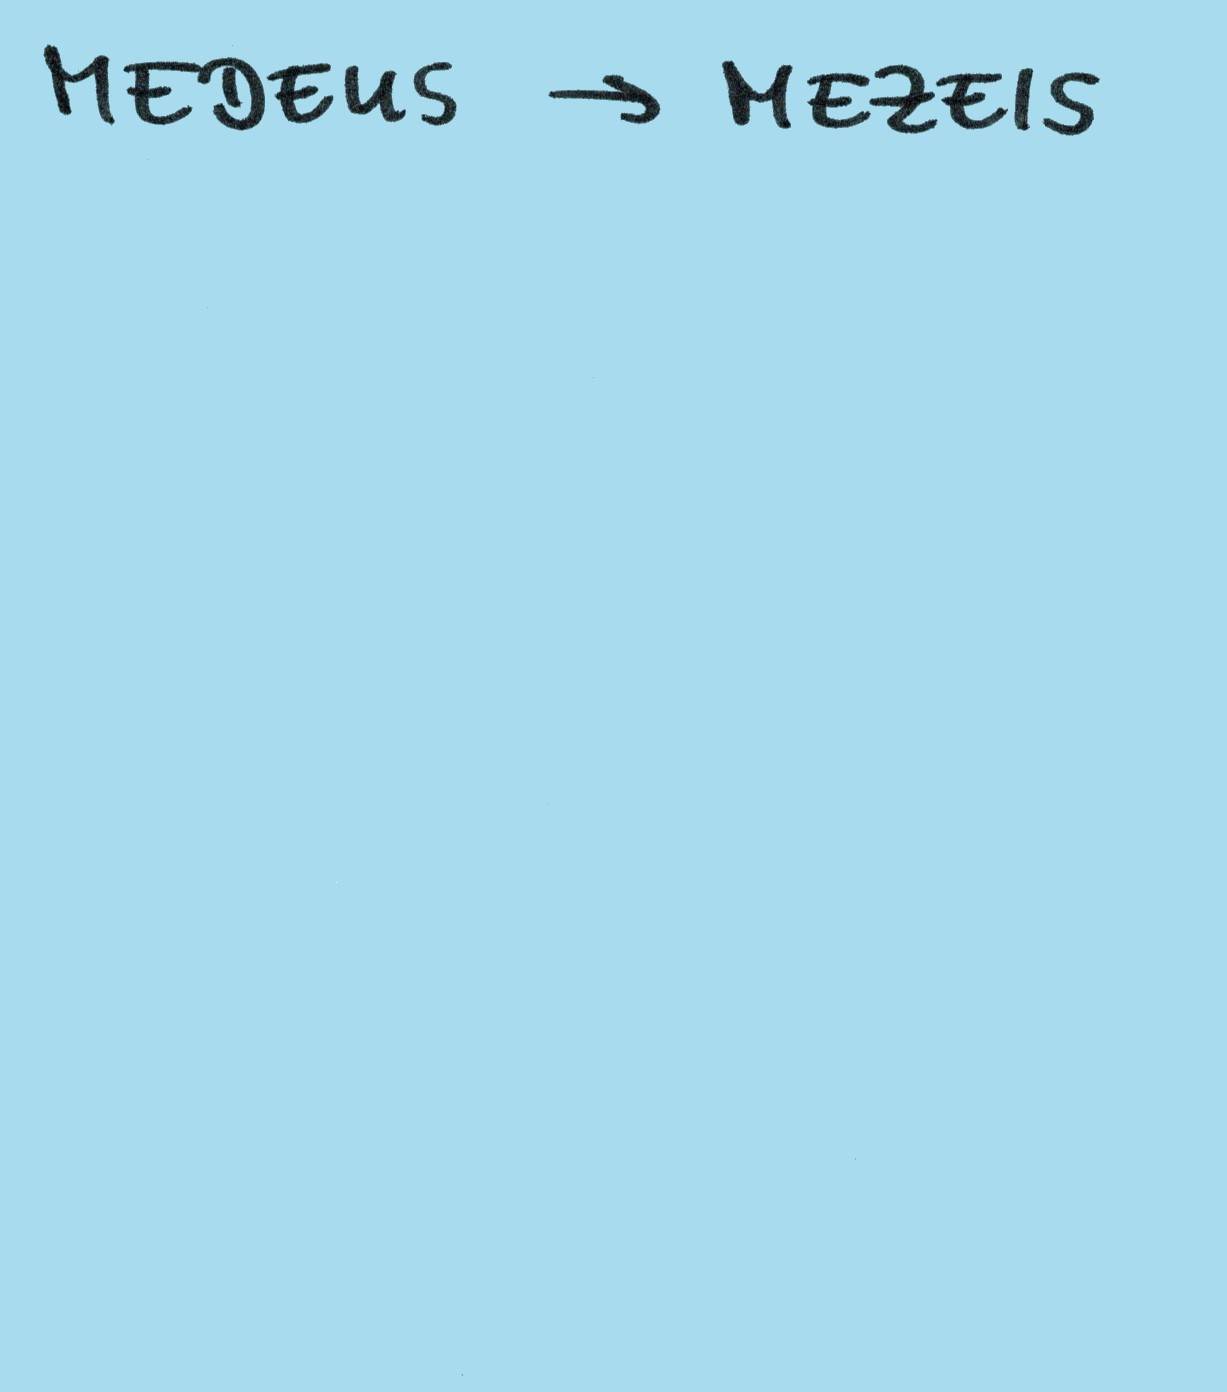 MEDEUS → MEZEIS